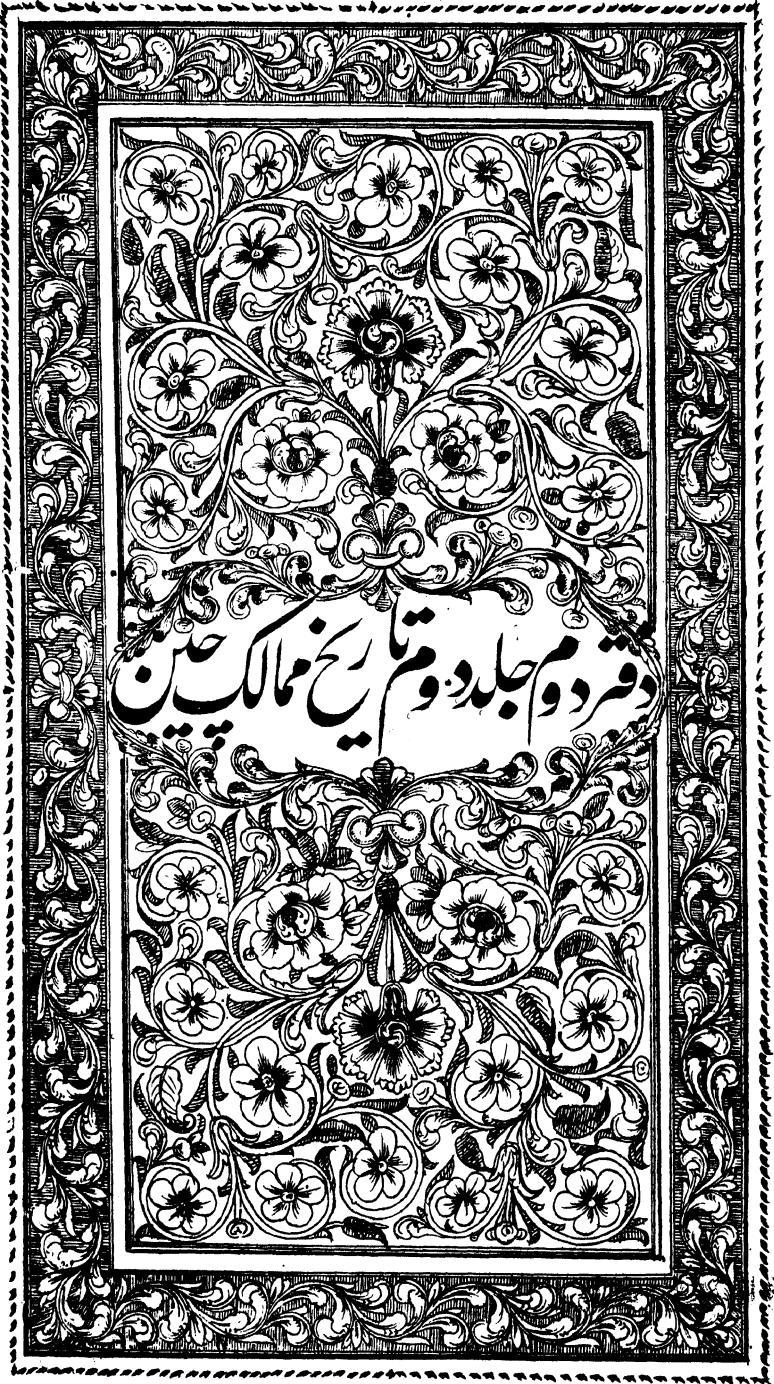 دفتر دوم جلد دوم تاریخ ممالک چین